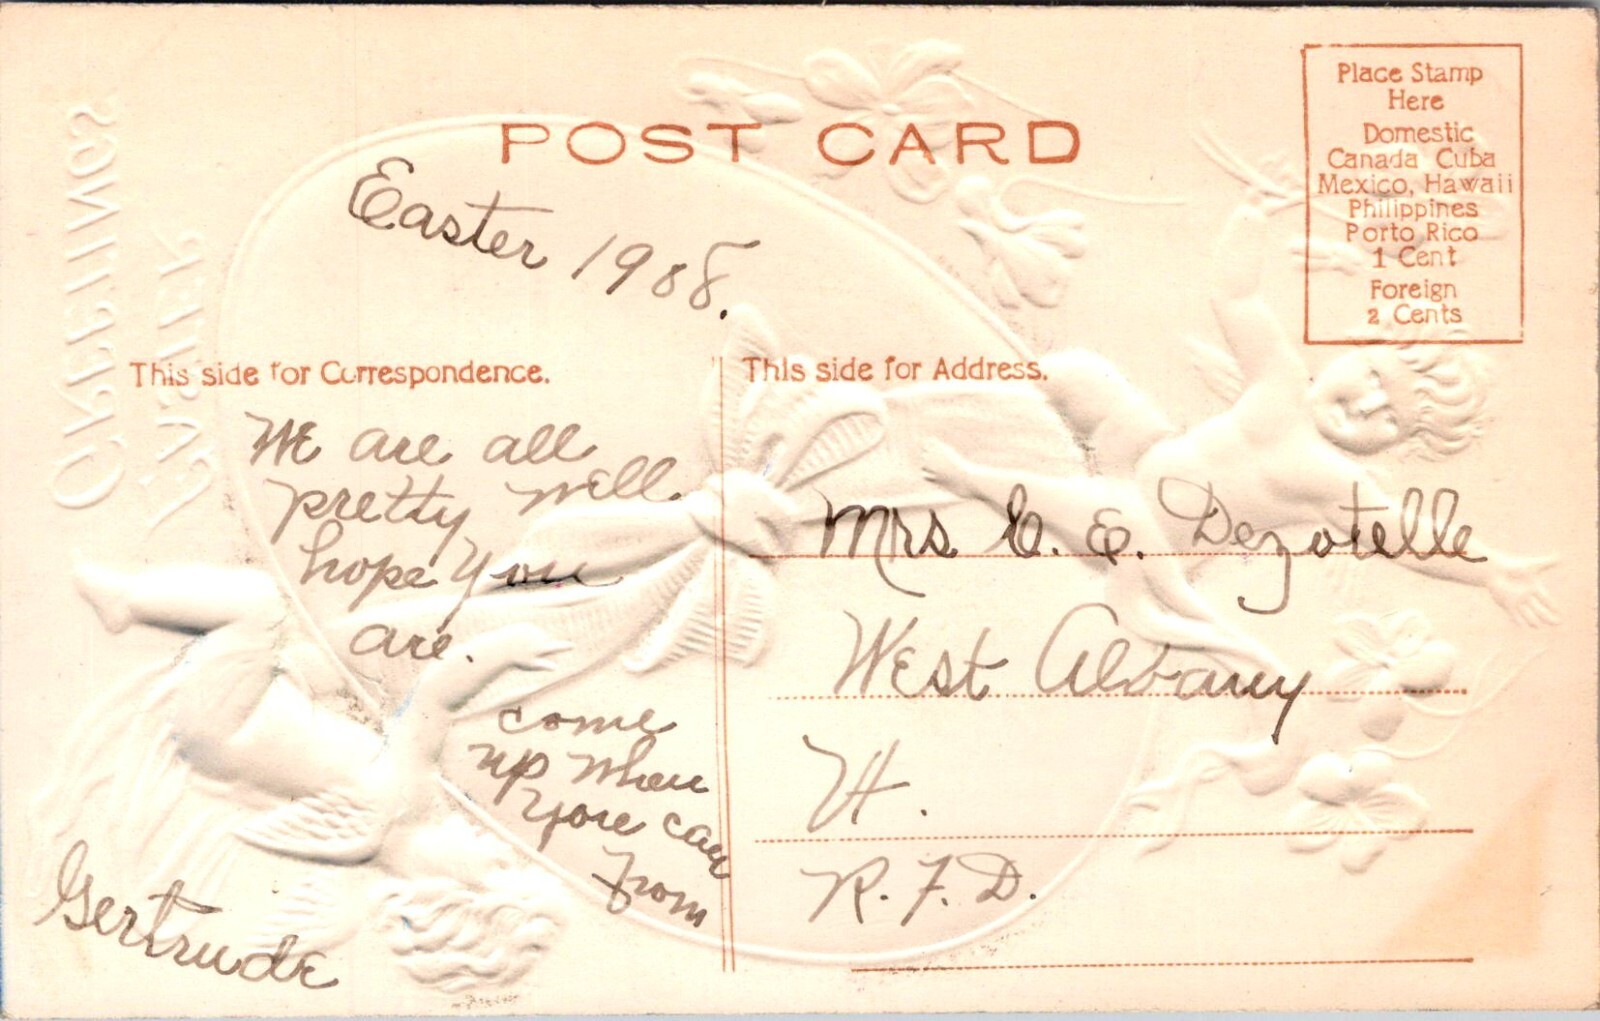 POST CARD
Place Stamp
Here
Domestic
Canada Cuba
Mexico, Hawaii
Philippines
Porto Rico
1 Cent
Foreign
2 Cents
GREETINGS
EASTER
Easter 1908.
This side for Correspondence.
We are all
pretty well
hope you
are.
come
up when
youre can
From
Gertrude
This side for Address.
Mrs C. E. Dezotelle
West Albany
Vt.
R.F.D.